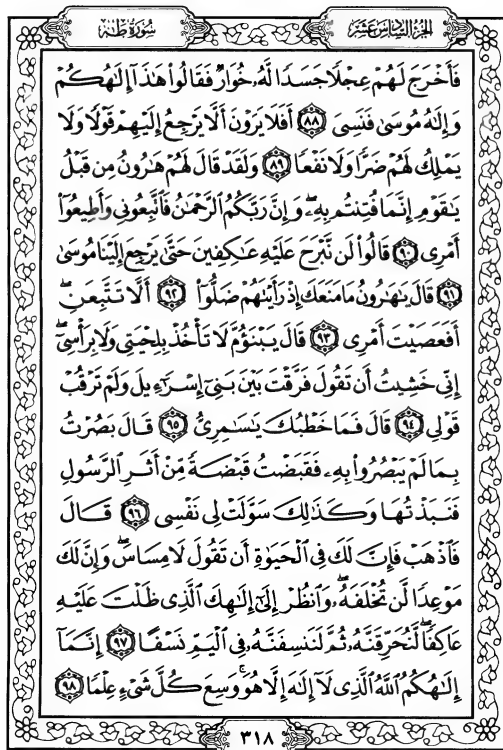 سُورَةُ طه
الجُزْءُ السَّادِسَ عَشَرَ
فَأَخْرَجَ لَهُمْ عِجْلًا جَسَدًا لَّهُۥ خُوَارٌ فَقَالُوا۟ هَٰذَآ إِلَٰهُكُمْ
وَإِلَٰهُ مُوسَىٰ فَنَسِىَ ٨٨ أَفَلَا يَرَوْنَ أَلَّا يَرْجِعُ إِلَيْهِمْ قَوْلًا وَلَا
يَمْلِكُ لَهُمْ ضَرًّا وَلَا نَفْعًا ٨٩ وَلَقَدْ قَالَ لَهُمْ هَٰرُونُ مِن قَبْلُ
يَٰقَوْمِ إِنَّمَا فُتِنتُم بِهِۦۖ وَإِنَّ رَبَّكُمُ ٱلرَّحْمَٰنُ فَٱتَّبِعُونِى وَأَطِيعُوٓا۟
أَمْرِى ٩٠ قَالُوا۟ لَن نَّبْرَحَ عَلَيْهِ عَٰكِفِينَ حَتَّىٰ يَرْجِعَ إِلَيْنَا مُوسَىٰ
٩١ قَالَ يَٰهَٰرُونُ مَا مَنَعَكَ إِذْ رَأَيْتَهُمْ ضَلُّوٓا۟ ٩٢ أَلَّا تَتَّبِعَنِۖ
أَفَعَصَيْتَ أَمْرِى ٩٣ قَالَ يَبْنَؤُمَّ لَا تَأْخُذْ بِلِحْيَتِى وَلَا بِرَأْسِىٓۖ
إِنِّى خَشِيتُ أَن تَقُولَ فَرَّقْتَ بَيْنَ بَنِىٓ إِسْرَٰٓءِيلَ وَلَمْ تَرْقُبْ
قَوْلِى ٩٤ قَالَ فَمَا خَطْبُكَ يَٰسَٰمِرِىُّ ٩٥ قَالَ بَصُرْتُ
بِمَا لَمْ يَبْصُرُوا۟ بِهِۦ فَقَبَضْتُ قَبْضَةً مِّنْ أَثَرِ ٱلرَّسُولِ
فَنَبَذْتُهَا وَكَذَٰلِكَ سَوَّلَتْ لِى نَفْسِى ٩٦ قَالَ
فَٱذْهَبْ فَإِنَّ لَكَ فِى ٱلْحَيَوٰةِ أَن تَقُولَ لَا مِسَاسَۖ وَإِنَّ لَكَ
مَوْعِدًا لَّن تُخْلَفَهُۥۖ وَٱنظُرْ إِلَىٰٓ إِلَٰهِكَ ٱلَّذِى ظَلْتَ عَلَيْهِ
عَاكِفًاۖ لَّنُحَرِّقَنَّهُۥ ثُمَّ لَنَنسِفَنَّهُۥ فِى ٱلْيَمِّ نَسْفًا ٩٧ إِنَّمَآ
إِلَٰهُكُمُ ٱللَّهُ ٱلَّذِى لَآ إِلَٰهَ إِلَّا هُوَۚ وَسِعَ كُلَّ شَىْءٍ عِلْمًا ٩٨
٣١٨